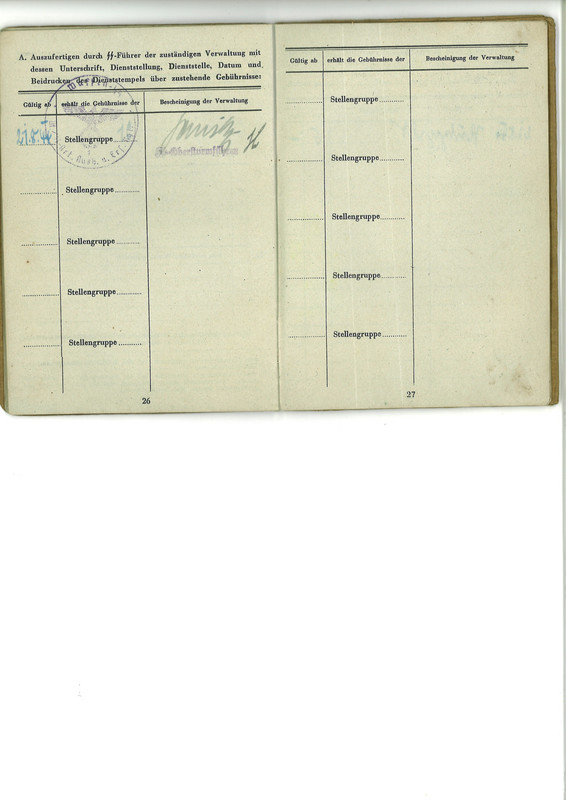 A. Auszufertigen durch ᛋᛋ-Führer der zuständigen Verwaltung mit
dessen Unterschrift, Dienststellung, Dienststelle, Datum und
Beidrucken des Dienststempels über zustehende Gebührnisse:
Gültig ab
erhält die Gebührnisse der
Bescheinigung der Verwaltung
Stellengruppe
ᛋᛋ-Obersturmführer
Stellengruppe
Stellengruppe
Stellengruppe
Stellengruppe
26
Gültig ab
erhält die Gebührnisse der
Bescheinigung der Verwaltung
Stellengruppe
Stellengruppe
Stellengruppe
Stellengruppe
Stellengruppe
27